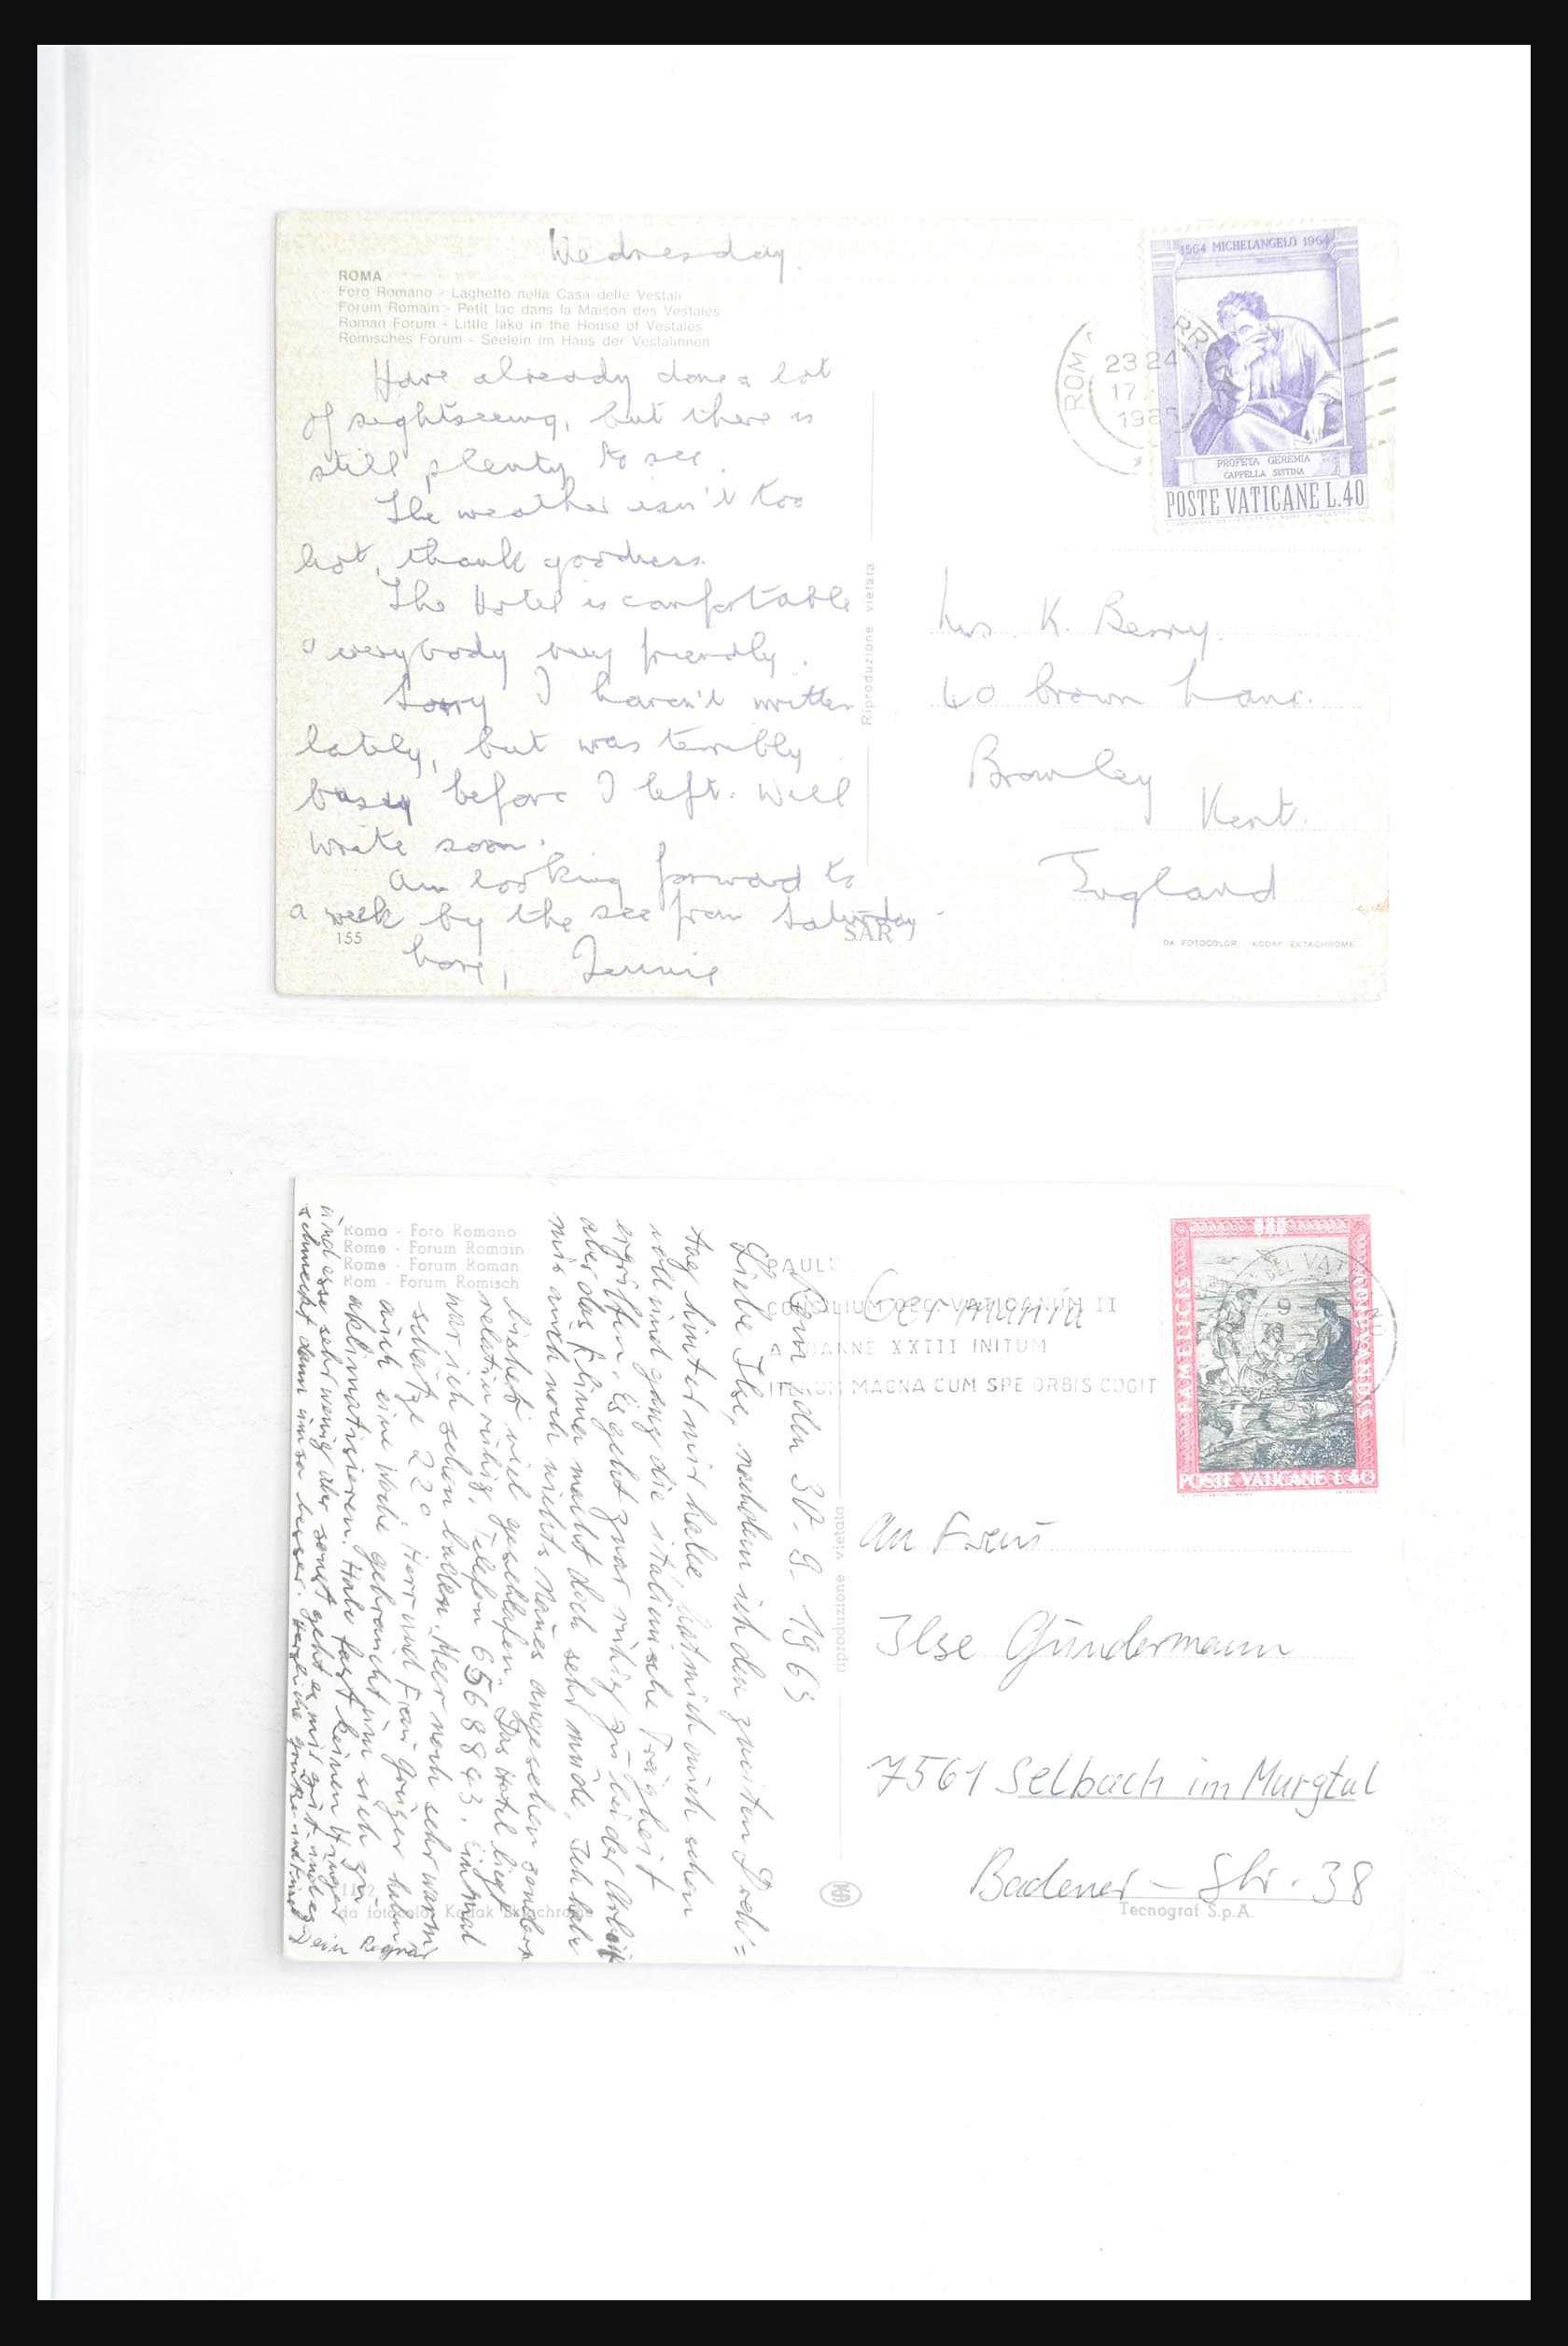 Wednesday.
ROMA
Foro Romano - Laghetto nella Casa delle Vestali
Forum Romain - Petit lac dans la Maison des Vestales
Roman Forum - Little lake in the House of Vestales
Römisches Forum - Seelein im Haus der Vestalinnen
Have already done a lot
of sightseeing, but there is
still plenty to see.
The weather isn't too
hot, thank goodness.
The Hotel is comfortable
& everybody very friendly.
Sorry I haven't written
lately, but was terribly
busy before I left. Will
write soon.
Am looking forward to
a week by the sea from Saturday.
Love, Jennie
155
SAR
Riproduzione vietata
1564 MICHELANGELO 1964
PROFETA GEREMIA
CAPPELLA SISTINA
POSTE VATICANE L.40
ROMA
23 24
17
Mrs. K. Berry.
40 brown Lane.
Bromley
Kent.
England
DA FOTOCOLOR KODAK EKTACHROME
Roma - Foro Romano
Rome - Forum Romain
Rome - Forum Roman
Rom - Forum Römisch
Rom den 30.9.1963
Liebe Ilse, nachdem ich den zweiten Dreh=
tag hinter mir habe, hat mich auch schon
voll und ganz die italienische Trägheit
ergriffen. Es geht zwar ruhig zu bei der Arbeit
aber das Klima macht doch sehr müde. Ich habe
mir auch noch nichts Neues angesehen sondern
bisher viel geschlafen. Das Hotel liegt
relativ ruhig. Telefon 6568843. einmal
war ich schon baden. Meer noch sehr warm
schätze 22°. Herr und Frau haben
auch eine Woche gebraucht um sich zu
aklimatisieren. Habe fast keinen Hunger
und esse sehr wenig aber sonst geht es mir gut und es
schmeckt dann umso besser. Herzliche Grüße und
Dein
da fotocolor Kodak Ektachrome
riproduzione vietata
PAULUS
CONCILIUM OEC. VATICANUM II
A IOANNE XXIII INITUM
ITERUM MAGNA CUM SPE ORBIS COGIT
Germania
FAMELICIS
ADIUVANDIS
POSTE VATICANE L.40
An Frau
Ilse Gundermann
7561 Selbach im Murgtal
Badener - Str. 38
Tecnograf S.p.A.